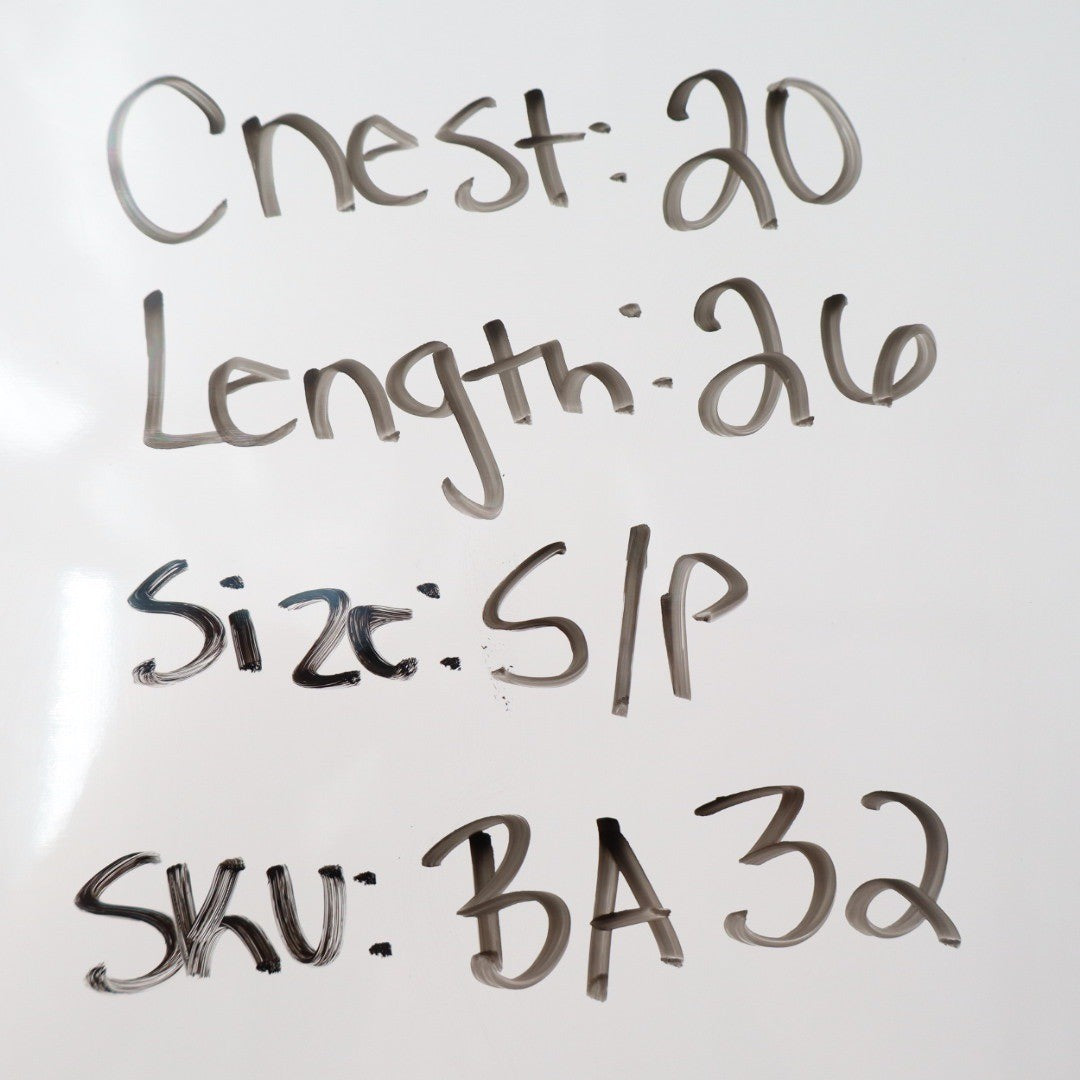 Chest: 20
Length: 26
Size: S/P
SKU: BA32